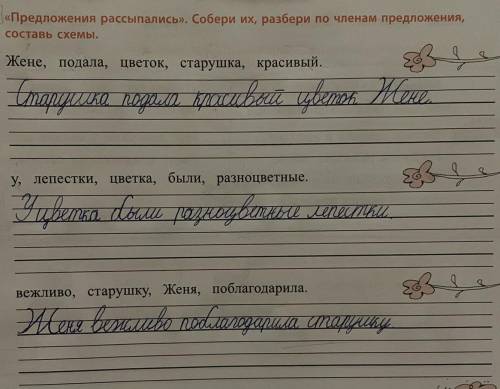 «Предложения рассыпались». Собери их, разбери по членам предложения,
составь схемы.
Жене, подала, цветок, старушка, красивый.
Старушка подала красивый цветок Жене.
у, лепестки, цветка, были, разноцветные.
У цветка были разноцветные лепестки.
вежливо, старушку, Женя, поблагодарила.
Женя вежливо поблагодарила старушку.